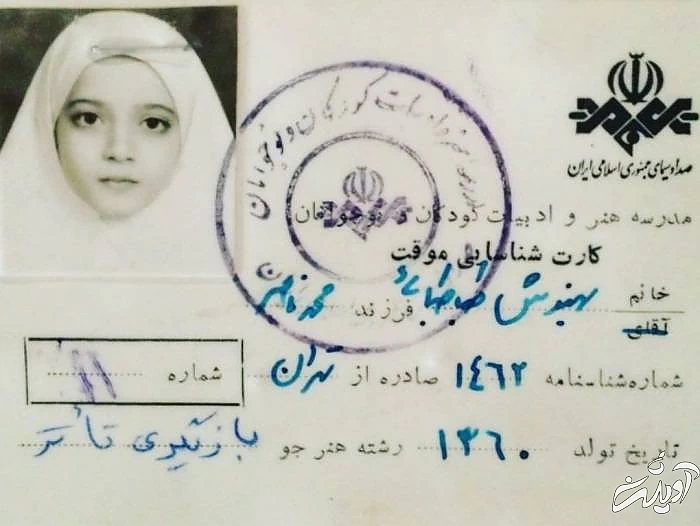 صدا و سیمای جمهوری اسلامی ایران
مدرسه هنر و ادبیات کودکان و نوجوانان
کارت شناسایی موقت
خانم
آقای
مهنوش طباطبائی فرزند محمد ناصر
شماره شناسنامه ۱۴۶۲ صادره از تهران
شماره ۱۱
تاریخ تولد ۱۳۶۰ رشته هنر جو بازیگری تأتر
ادبیات کودکان و نوجوانان